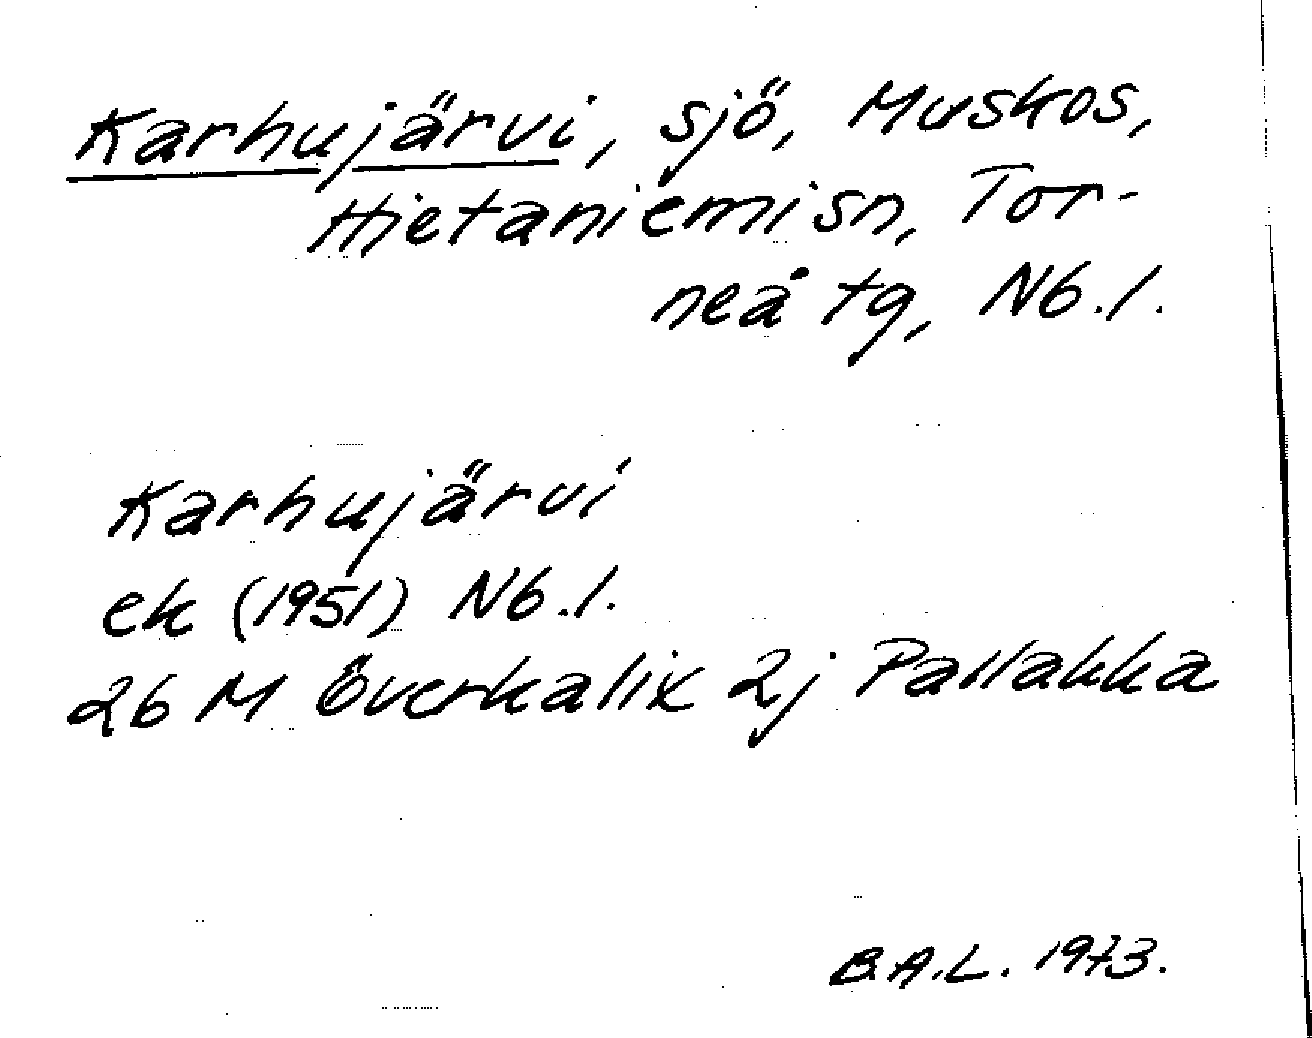 Karhujärvi, sjö, Muskos,
Hietaniemi sn, Tor-
neå tg, Nb.l.
Karhujärvi
ek (1951) Nb.l.
26 M Överkalix 2j Pallakka
B.A.L. 1973.